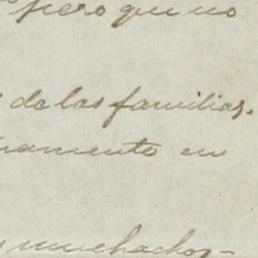 pero que no
de las familias.
amento en
muchachos-